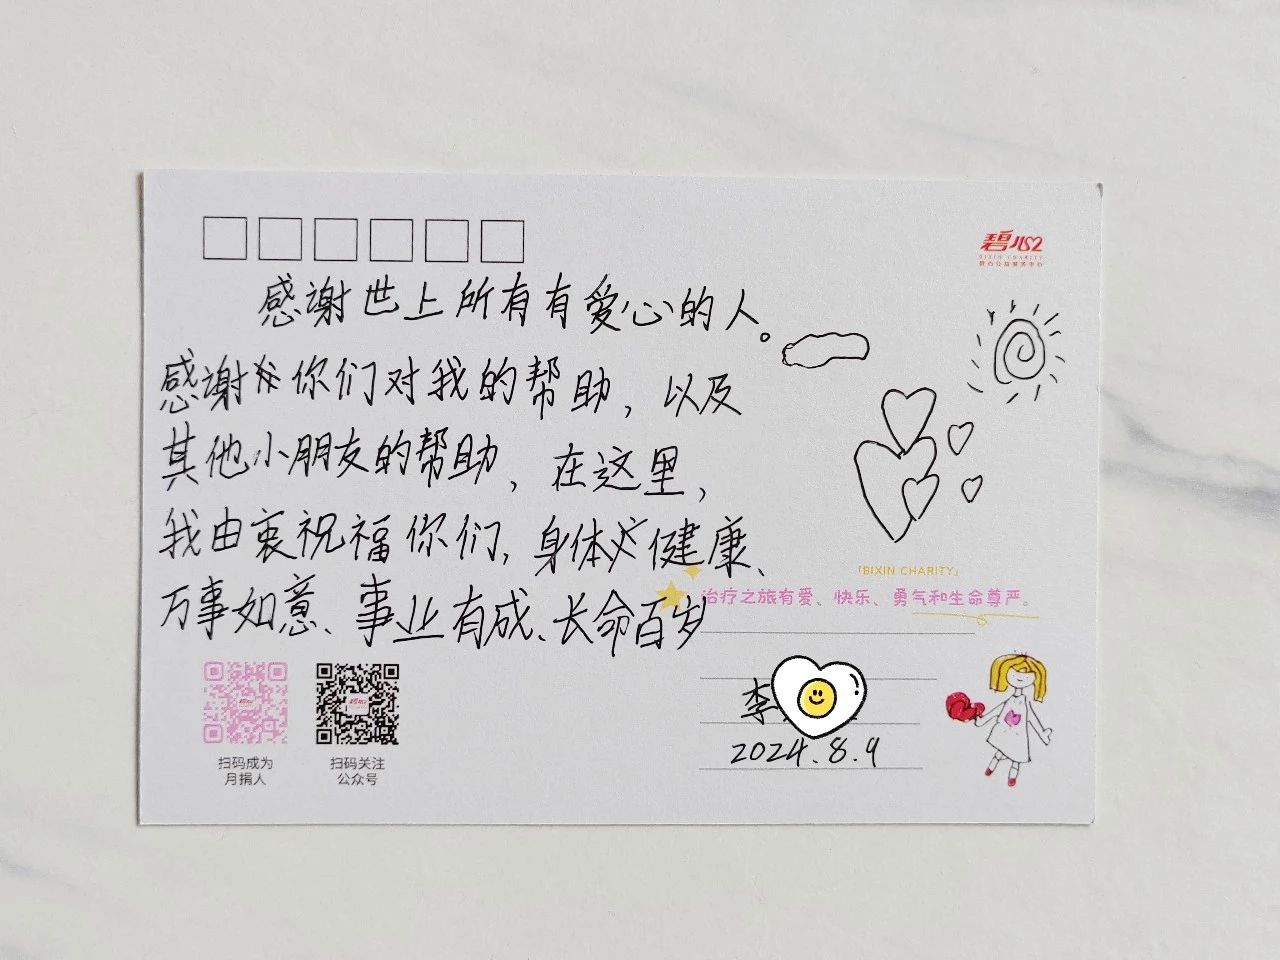 碧心
BIXIN CHARITY
感谢世上所有有爱心的人。
感谢你们对我的帮助，以及
其他小朋友的帮助，在这里，
我由衷祝福你们，身体健康、
万事如意、事业有成、长命百岁
「BIXIN CHARITY」
治疗之旅有爱、快乐、勇气和生命尊严。
李
2024.8.9
扫码成为
月捐人
扫码关注
公众号